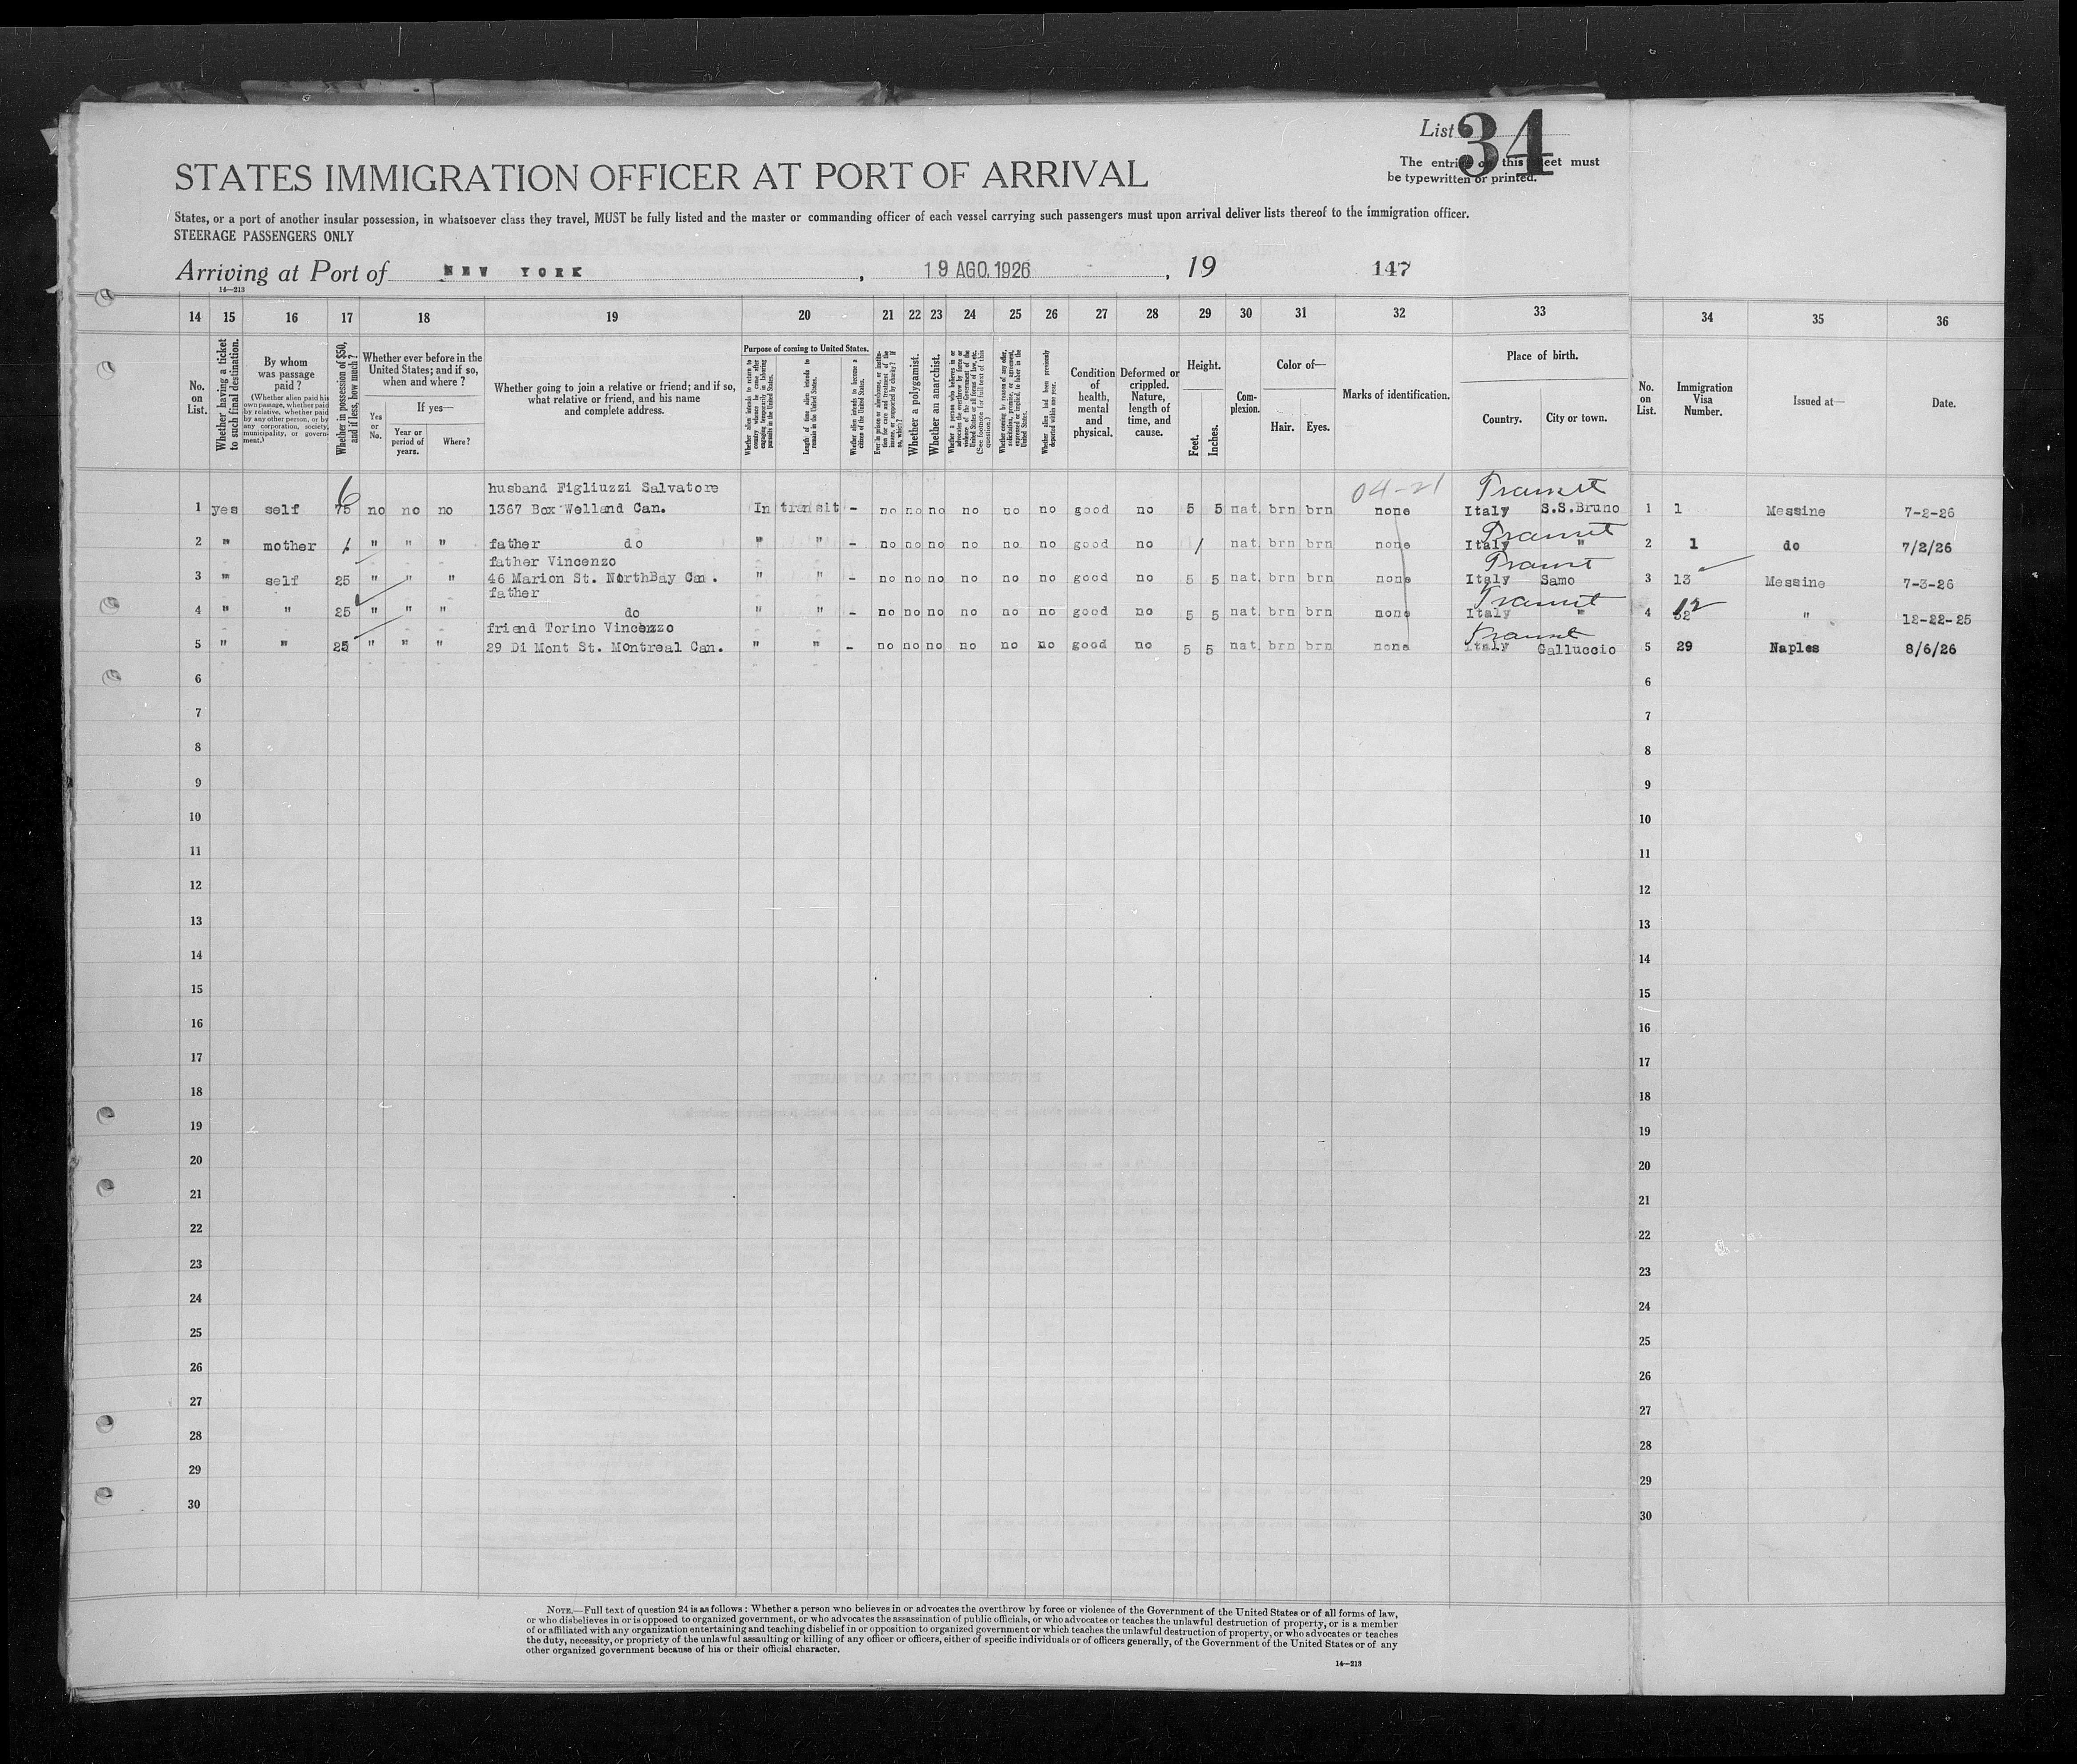 List 34
The entries on this sheet must
be typewritten or printed.
STATES IMMIGRATION OFFICER AT PORT OF ARRIVAL
States, or a port of another insular possession, in whatsoever class they travel, MUST be fully listed and the master or commanding officer of each vessel carrying such passengers must upon arrival deliver lists thereof to the immigration officer.
STEERAGE PASSENGERS ONLY
Arriving at Port of NEW YORK, 19 AGO. 1926, 19 147
14—213
14 15 16 17 18 19 20 21 22 23 24 25 26 27 28 29 30 31 32 33 34 35 36
No. on List.
Whether having a ticket to such final destination.
By whom was passage paid?
(Whether alien paid his own passage, whether paid by relative, whether paid by any other person, or by any corporation, society, municipality, or government.)
Whether in possession of $50, and if less, how much?
Whether ever before in the United States; and if so, when and where?
Yes or No.
If yes—
Year or period of years.
Where?
Whether going to join a relative or friend; and if so, what relative or friend, and his name and complete address.
Purpose of coming to United States.
Whether alien intends to return to country whence he came after engaging temporarily in laboring pursuits in the United States.
Length of time alien intends to remain in the United States.
Whether alien intends to become a citizen of the United States.
Ever in prison or almshouse, or institution for care and treatment of the insane, or supported by charity? If so, which?
Whether a polygamist.
Whether an anarchist.
Whether a person who believes in or advocates the overthrow by force or violence of the Government of the United States or all forms of law, etc. (See footnote for full text of this question.)
Whether coming by reason of any offer, solicitation, promise, or agreement, expressed or implied, to labor in the United States.
Whether alien had been previously deported within one year.
Condition of health, mental and physical.
Deformed or crippled. Nature, length of time, and cause.
Height.
Feet. Inches.
Complexion.
Color of—
Hair. Eyes.
Marks of identification.
Place of birth.
Country. City or town.
No. on List.
Immigration Visa Number.
Issued at—
Date.
husband Figliuzzi Salvatore 04-21 Transit
1 yes self 6 75 no no no 1367 Box Welland Can. In transit - no no no no no no good no 5 5 nat. brn brn none Italy S.S.Bruno 1 1 Messine 7-2-26
Transit
2 " mother / " " " father do " " - no no no no no no good no / nat. brn brn none Italy " 2 1 do 7/2/26
father Vincenzo Transit
3 " self 25 " " " 46 Marion St. NorthBay Can. " " - no no no no no no good no 5 5 nat. brn brn none Italy Samo 3 13 Messine 7-3-26
father Transit
4 " " 25 " " " do " " - no no no no no no good no 5 5 nat. brn brn none Italy " 4 12 " 12-22-25
friend Torino Vincenzo Transit
5 " " 25 " " " 29 Di Mont St. Montreal Can. " " - no no no no no no good no 5 5 nat. brn brn none Italy Galluccio 5 29 Naples 8/6/26
6 6
7 7
8 8
9 9
10 10
11 11
12 12
13 13
14 14
15 15
16 16
17 17
18 18
19 19
20 20
21 21
22 22
23 23
24 24
25 25
26 26
27 27
28 28
29 29
30 30
NOTE.—Full text of question 24 is as follows: Whether a person who believes in or advocates the overthrow by force or violence of the Government of the United States or of all forms of law,
or who disbelieves in or is opposed to organized government, or who advocates the assassination of public officials, or who advocates or teaches the unlawful destruction of property, or is a member
of or affiliated with any organization entertaining and teaching disbelief in or opposition to organized government or which teaches the unlawful destruction of property, or who advocates or teaches
the duty, necessity, or propriety of the unlawful assaulting or killing of any officer or officers, either of specific individuals or of officers generally, of the Government of the United States or of any
other organized government because of his or their official character.
14—213